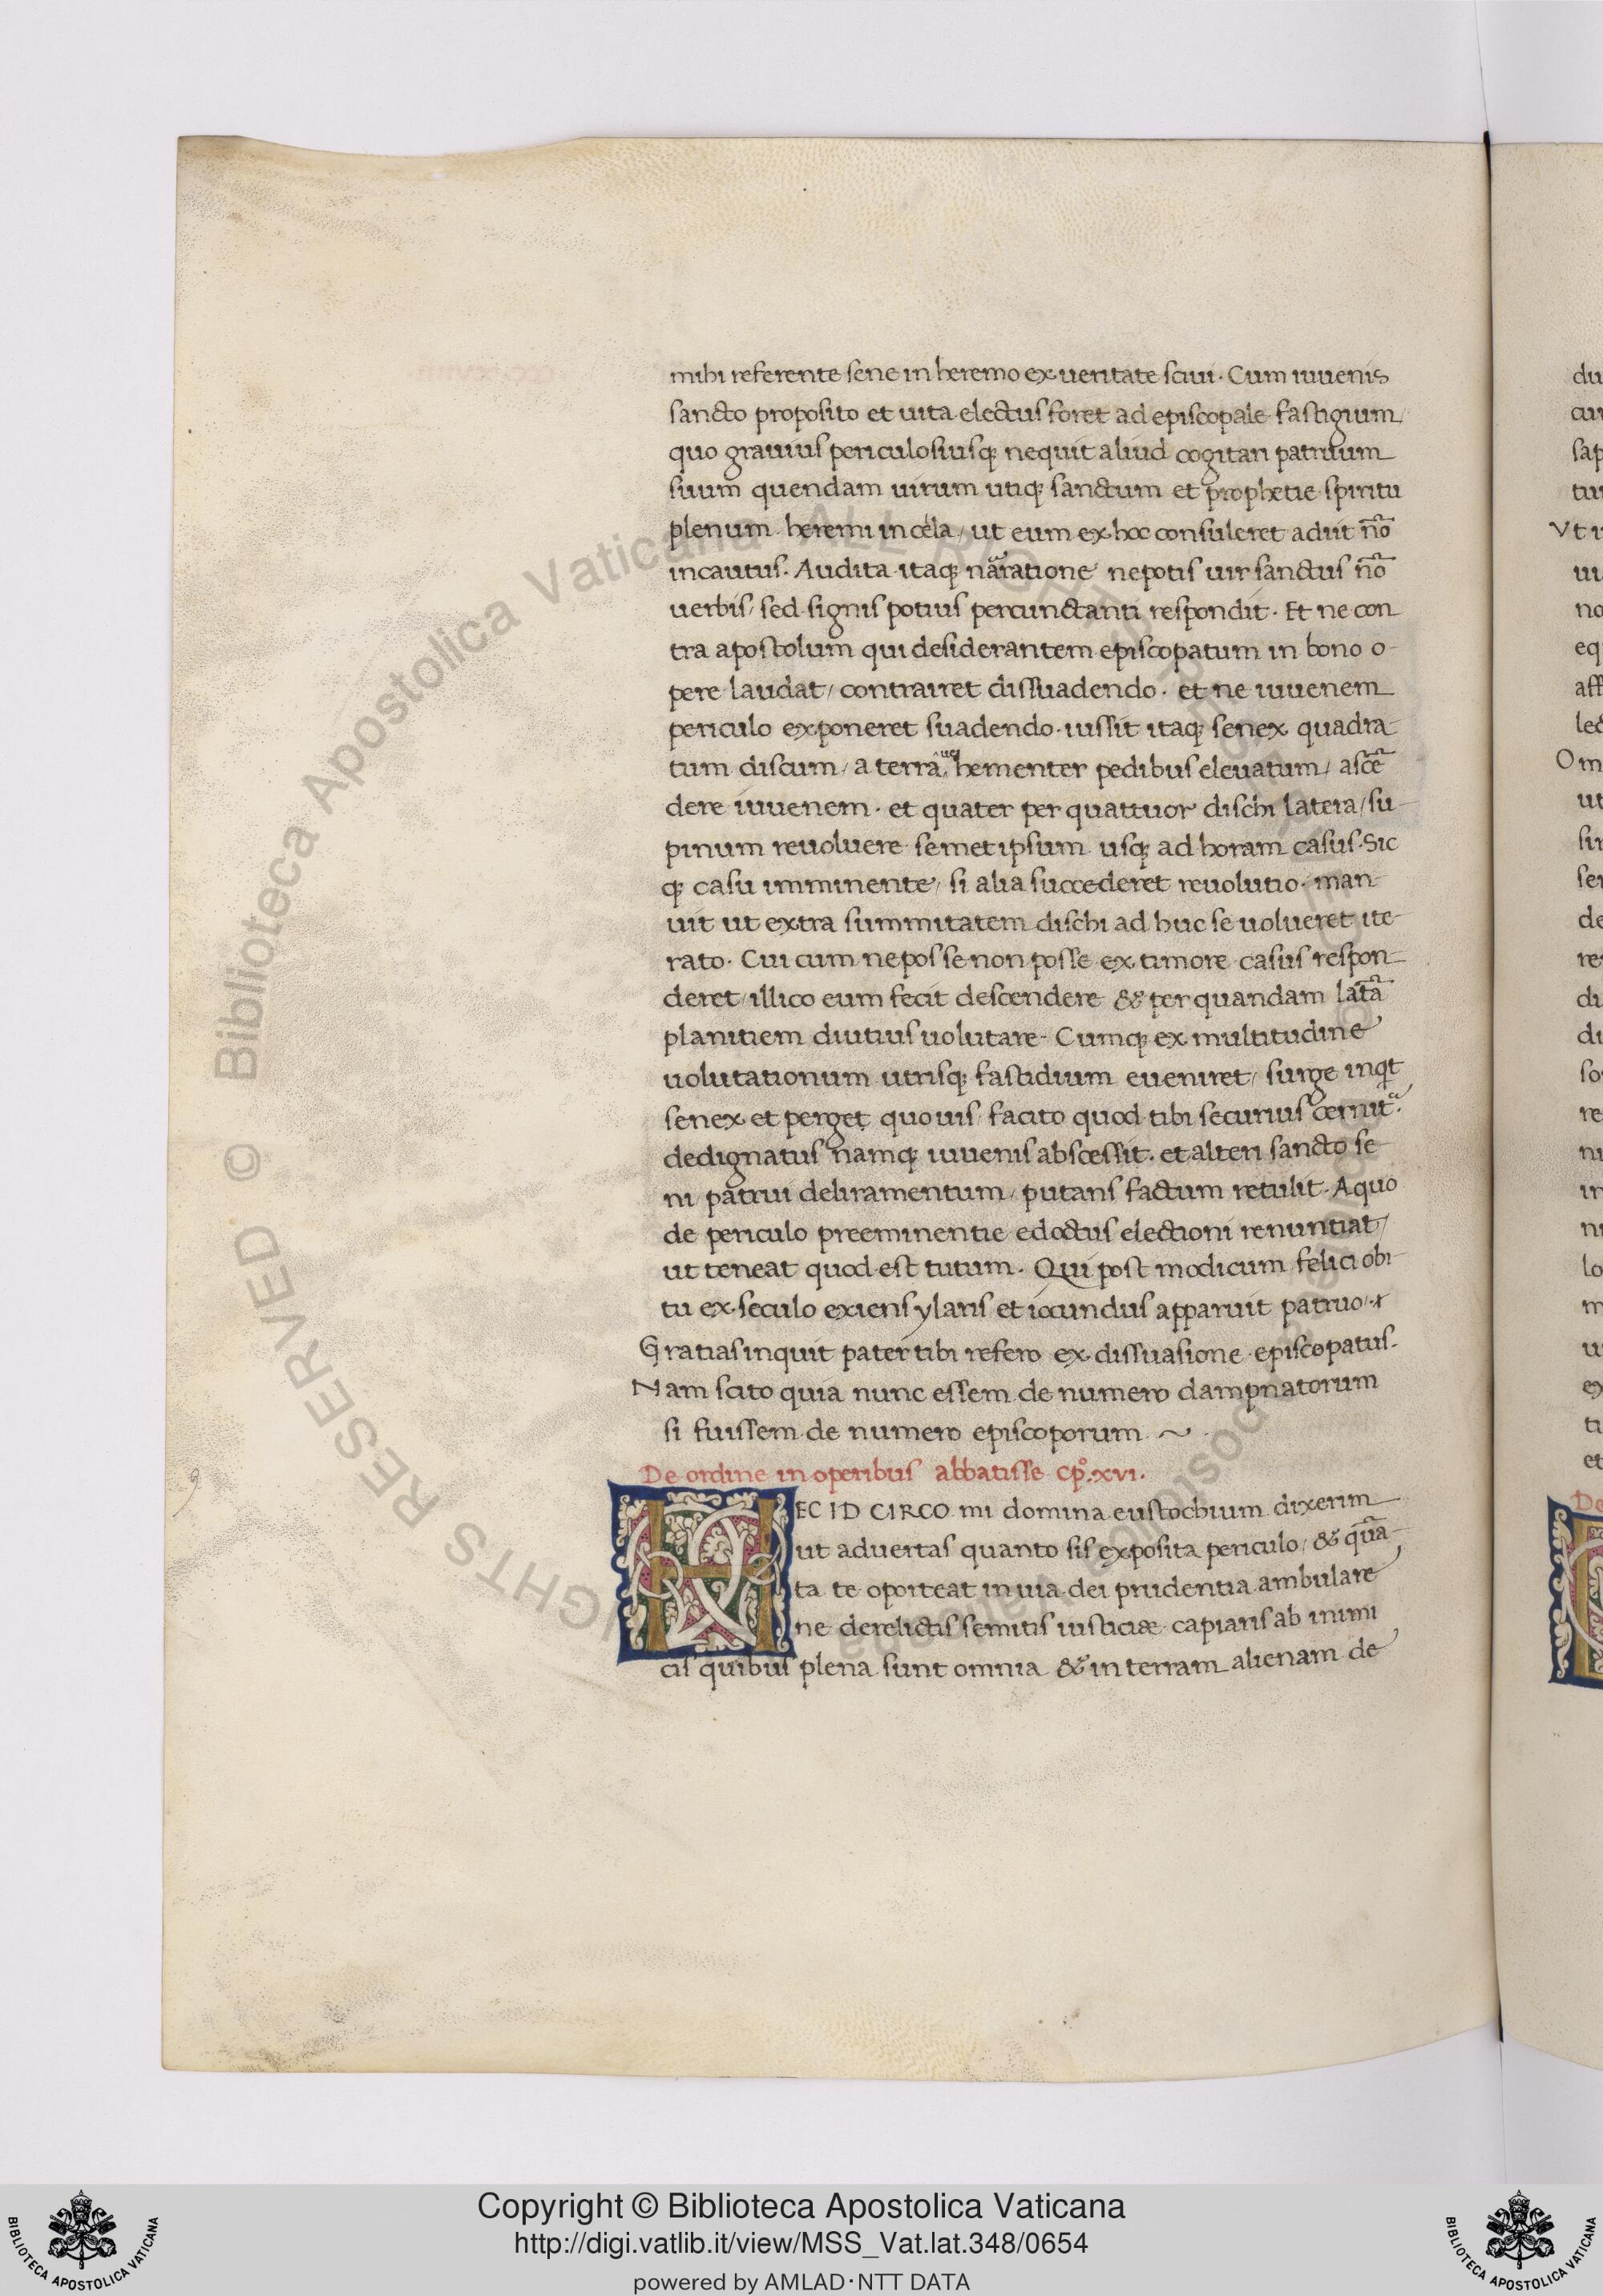 mihi referente sene in heremo ex ueritate sciui. Cum iuuenis
sancto proposito et uita electus foret ad episcopale fastigium
quo grauius periculosiusq; nequit aliud cogitari patruum
suum quendam uirum utiq; sanctum et prophetie spiritu
plenum heremi in cela/ ut eum ex hoc consuleret adiit nõ
incautus. Audita itaq; narratione nepotis uir sanctus nõ
uerbis/ sed signis potius percunctanti respondit. Et ne con
tra apostolum qui desiderantem episcopatum in bono o-
pere laudat/ contrairet dissuadendo. et ne iuuenem
periculo exponeret suadendo. iussit itaq; senex quadra-
tum discum/ a terra uehementer pedibus eleuatum/ ascẽ
dere iuuenem. et quater per quattuor dischi latera/ su-
pinum reuoluere semet ipsum usq; ad horam casus. Sic
q; casu imminente/ si alia succederet reuolutio. man-
uit ut extra summitatem dischi ad huc se uolueret ite-
rato. Cui cum nepos se non posse ex timore casus respon-
deret/ illico eum fecit descendere & per quandam latã
planitiem diutius uolutare. Cumq; ex multitudine
uolutationum utrisq; fastidium eueniret/ surge inqt
senex et perget quouis/ facito quod tibi securius cernit.
dedignatus namq; iuuenis abscessit. et alteri sancto se-
ni patrui deliramentum/ putans factum retulit. A quo
de periculo preeminentie edoctus electioni renuntiat/
ut teneat quod est tutum. Qui post modicum felici obi-
tu ex seculo exiens ylaris et iocundus apparuit patruo
Gratias inquit pater tibi refero ex dissuasione episcopatus.
Nam scito quia nunc essem de numero dampnatorum
si fuissem de numero episcoporum ~
De ordine in operibus abbatisse cp̃o. xvi.
HEC ID CIRCO mi domina eustochium dixerim
ut aduertas quanto sis exposita periculo/ & quã-
ta te oporteat in uia dei prudentia ambulare
ne derelictis semitis iusticiæ capiaris ab inimi
cis quibus plena sunt omnia & in terram alienam de
du
sap
tu
Vt i
ui
no
eq
aff
Om
ut
ser
de
re
di
so
re
in
lo
ex
et
De
© Biblioteca Apostolica Vaticana ALL RIGHTS RESERVED
Copyright © Biblioteca Apostolica Vaticana
http://digi.vatlib.it/view/MSS_Vat.lat.348/0654
powered by AMLAD·NTT DATA
BIBLIOTECA APOSTOLICA VATICANA
BIBLIOTECA APOSTOLICA VATICANA